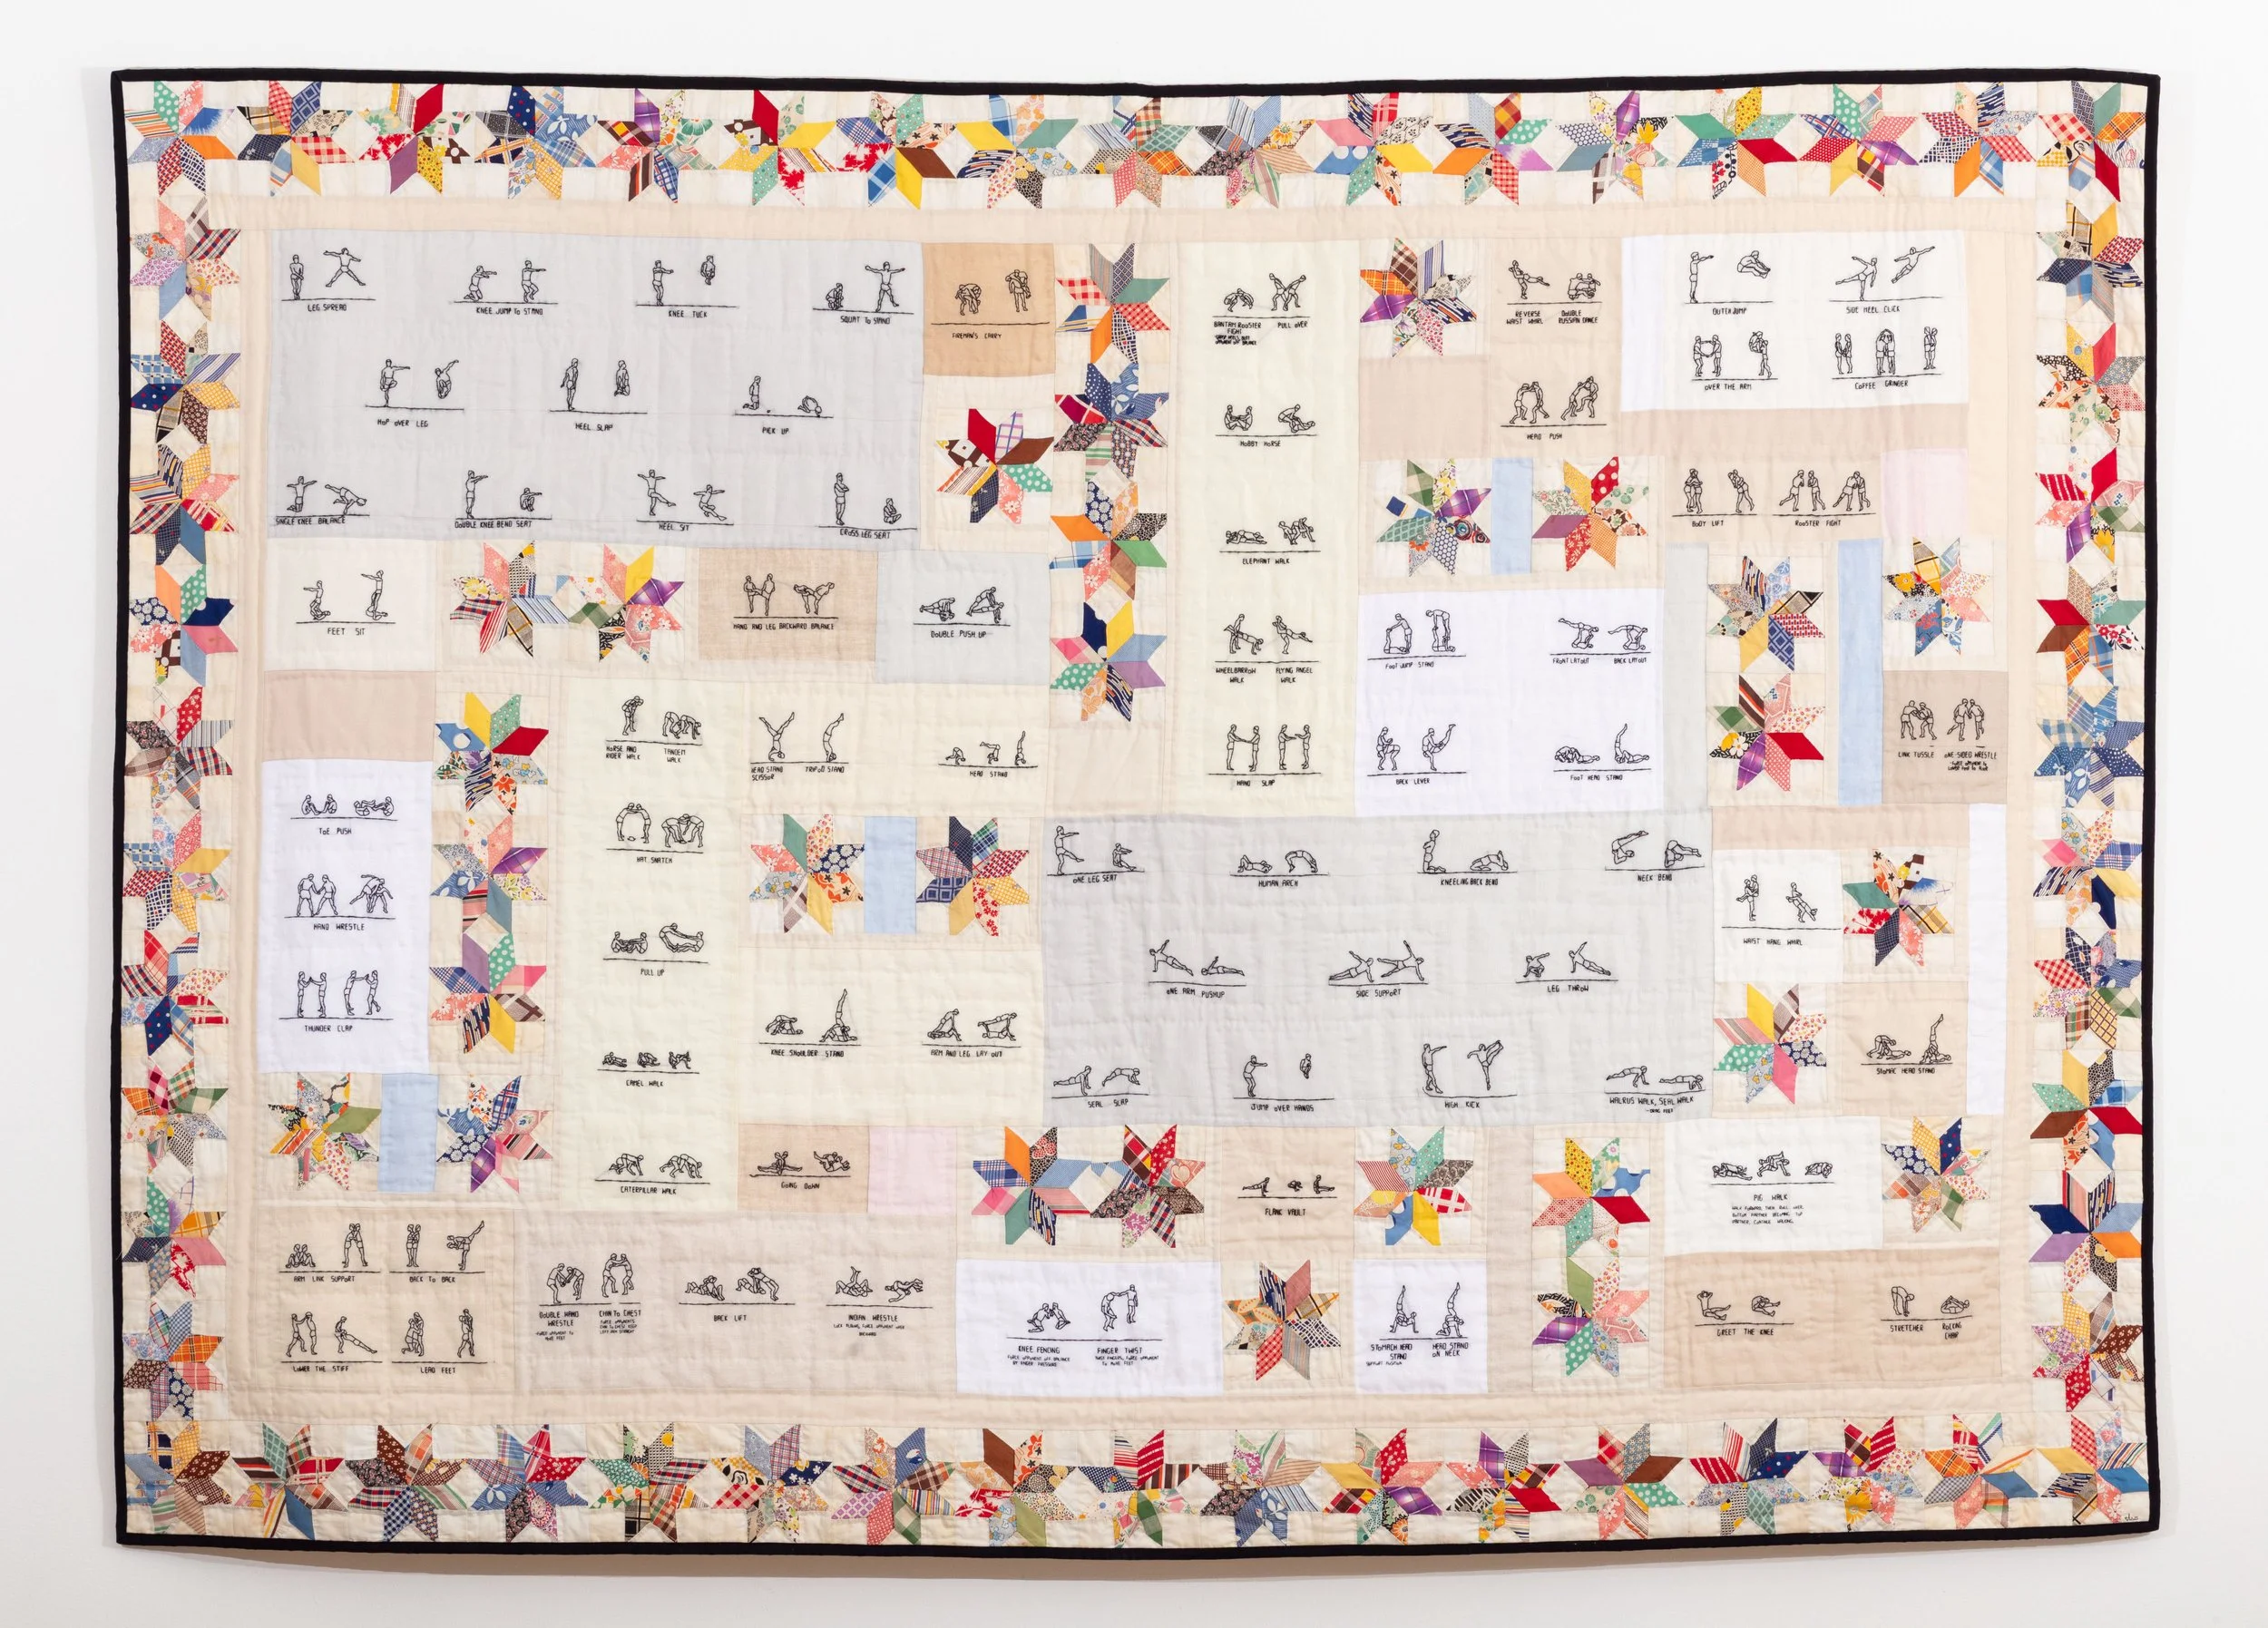 LEG SPREAD
KNEE JUMP TO STAND
KNEE TUCK
SQUAT TO STAND
FIREMAN'S CARRY
HOP OVER LEG
HEEL SLAP
PICK UP
SINGLE KNEE BALANCE
DOUBLE KNEE BEND SEAT
HEEL SIT
CROSS LEG SEAT
BANTAM ROOSTER
FIGHT
PULL OVER
HOBBY HORSE
ELEPHANT WALK
WHEELBARROW
WALK
FLYING ANGEL
WALK
HAND SLAP
REVERSE
WAIST WHIRL
DOUBLE
RUSSIAN DANCE
HEAD PUSH
OUTER JUMP
SIDE HEEL CLICK
OVER THE ARM
COFFEE GRINDER
BODY LIFT
ROOSTER FIGHT
FEET SIT
HAND AND LEG BACKWARD BALANCE
DOUBLE PUSH UP
FOOT JUMP STAND
FRONT LAYOUT
BACK LAYOUT
BACK LEVER
FOOT HEAD STAND
LINK TUSSLE
ONE-SIDED WRESTLE
HORSE AND
RIDER WALK
TANDEM
WALK
HEAD STAND
SCISSOR
TRIPOD STAND
HEAD STAND
TOE PUSH
HAND WRESTLE
THUNDER CLAP
HAT SNATCH
PULL UP
CAMEL WALK
CATERPILLAR WALK
KNEE SHOULDER STAND
ARM AND LEG LAY OUT
GOING DOWN
ONE LEG SEAT
HUMAN ARCH
KNEELING BACK BEND
NECK BEND
ONE ARM PUSHUP
SIDE SUPPORT
LEG THROW
SEAL SLAP
JUMP OVER HANDS
HIGH KICK
WALRUS WALK, SEAL WALK
WAIST HANG WHIRL
STOMAC HEAD STAND
FLANK VAULT
PIG WALK
WALK FORWARD, THEN ROLL OVER.
BOTTOM PARTNER BECOMING TOP
PARTNER, CONTINUE WALKING.
ARM LINK SUPPORT
BACK TO BACK
LOWER THE STIFF
LEAD FEET
DOUBLE HAND
WRESTLE
FORCE OPPONENT TO
MOVE FEET
CHIN TO CHEST
BACK LIFT
INDIAN WRESTLE
LOCK ELBOWS, FORCE OPPONENT OVER
BACKWARD
KNEE FENCING
FORCE OPPONENT OFF BALANCE
BY FINGER PRESSURE
FINGER TWIST
TWIST FINGERS, FORCE OPPONENT
TO MOVE FEET
STOMACH HEAD
STAND
SUPPORT POSITION
HEAD STAND
ON NECK
GREET THE KNEE
STRETCHER
ROCKING
CHAIR